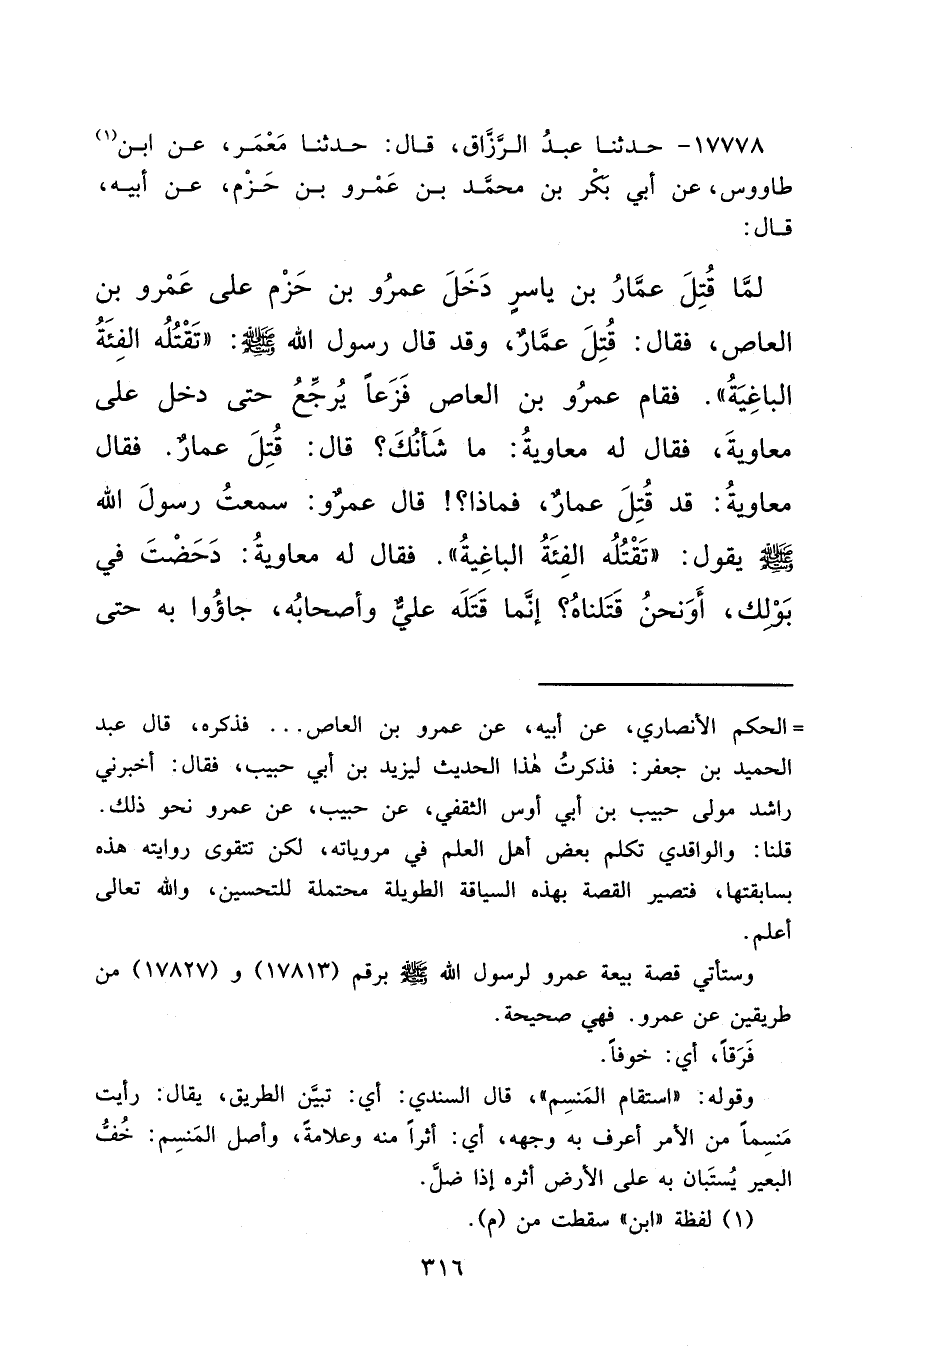 ١٧٧٧٨- حـدثنـا عبـدُ الـرَّزَّاق، قـال: حـدثنـا مَعْمَـر، عـن ابـن(١)
طاووس، عن أبي بَكْر بن محمَّـد بـن عَمْـرو بـن حَـزْم، عـن أبيـه،
قـال:
لمَّا قُتِلَ عمَّارُ بن ياسرٍ دَخَلَ عمرُو بن حَزْم على عَمْرو بن
العاص، فقال: قُتِلَ عمَّارٌ، وقد قال رسول الله ﷺ: «تَقْتُلُه الفِئَةُ
الباغِيَةُ». فقام عمرُو بن العاص فَزَعاً يُرجِّعُ حتى دخل على
معاويةَ، فقال له معاويةُ: ما شَأنُكَ؟ قال: قُتِلَ عمارٌ. فقال
معاويةُ: قد قُتِلَ عمارٌ، فماذا؟! قال عمرٌو: سمعتُ رسولَ الله
ﷺ يقول: «تَقْتُلُه الفِئَةُ الباغيةُ». فقال له معاويةُ: دَحَضْتَ في
بَوْلِك، أَوَنحنُ قَتَلناهُ؟ إنَّما قَتَلَه عليٌّ وأصحابُه، جاؤُوا به حتى
= الحكم الأنصاري، عن أبيه، عن عمرو بن العاص... فذكره، قال عبد
الحميد بن جعفر: فذكرتُ هٰذا الحديث ليزيد بن أبي حبيب، فقال: أخبرني
راشد مولى حبيب بن أبي أوس الثقفي، عن حبيب، عن عمرو نحو ذلك.
قلنا: والواقدي تكلم بعض أهل العلم في مروياته، لكن تتقوى روايته هذه
بسابقتها، فتصير القصة بهذه السياقة الطويلة محتملة للتحسين، والله تعالى
أعلم.
وستأتي قصة بيعة عمرو لرسول الله ﷺ برقم (١٧٨١٣) و (١٧٨٢٧) من
طريقين عن عمرو. فهي صحيحة.
فَرَقاً، أي: خوفاً.
وقوله: «استقام المَنسِم»، قال السندي: أي: تبيَّن الطريق، يقال: رأيت
مَنسِماً من الأمر أعرف به وجهه، أي: أثراً منه وعلامةً، وأصل المَنسِم: خُفُّ
البعير يُستَبان به على الأرض أثره إذا ضلَّ.
(١) لفظة «ابن» سقطت من (م).
٣١٦